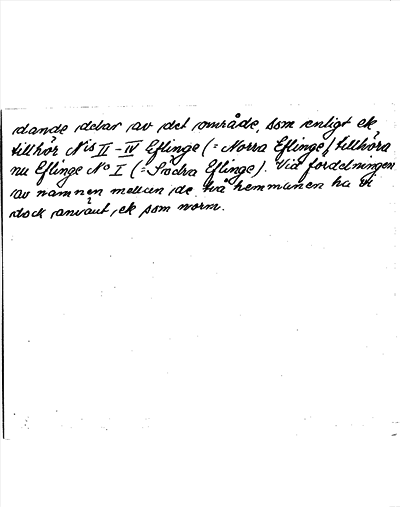 dande delar av det område, som enligt ek
tillhör N:is II - IV Eflinge (= Norra Eflinge) tillhöra
nu Eflinge No I (= Södra Eflinge). Vid fördelningen
av namnen mellan de två hemmanen ha vi
dock använt ek som norm.